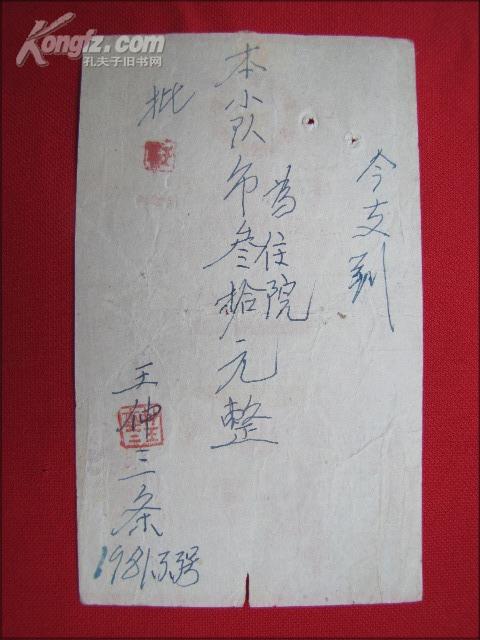 Kongfz.com
孔夫子旧书网
今支到
本小队币叁拾元整
为住院
批
王仲三条